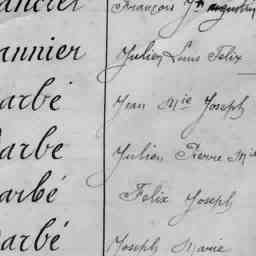 François
annier Julien Louis Felix
arbé Jean Mie Joseph
arbe Julien Pierre Mie
arbé Felix Joseph
arbé Joseph Marie